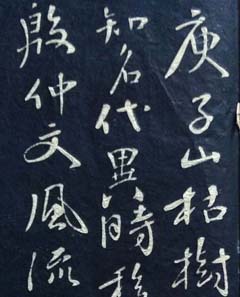 庾子山枯樹
知名代異時移
殷仲文風流